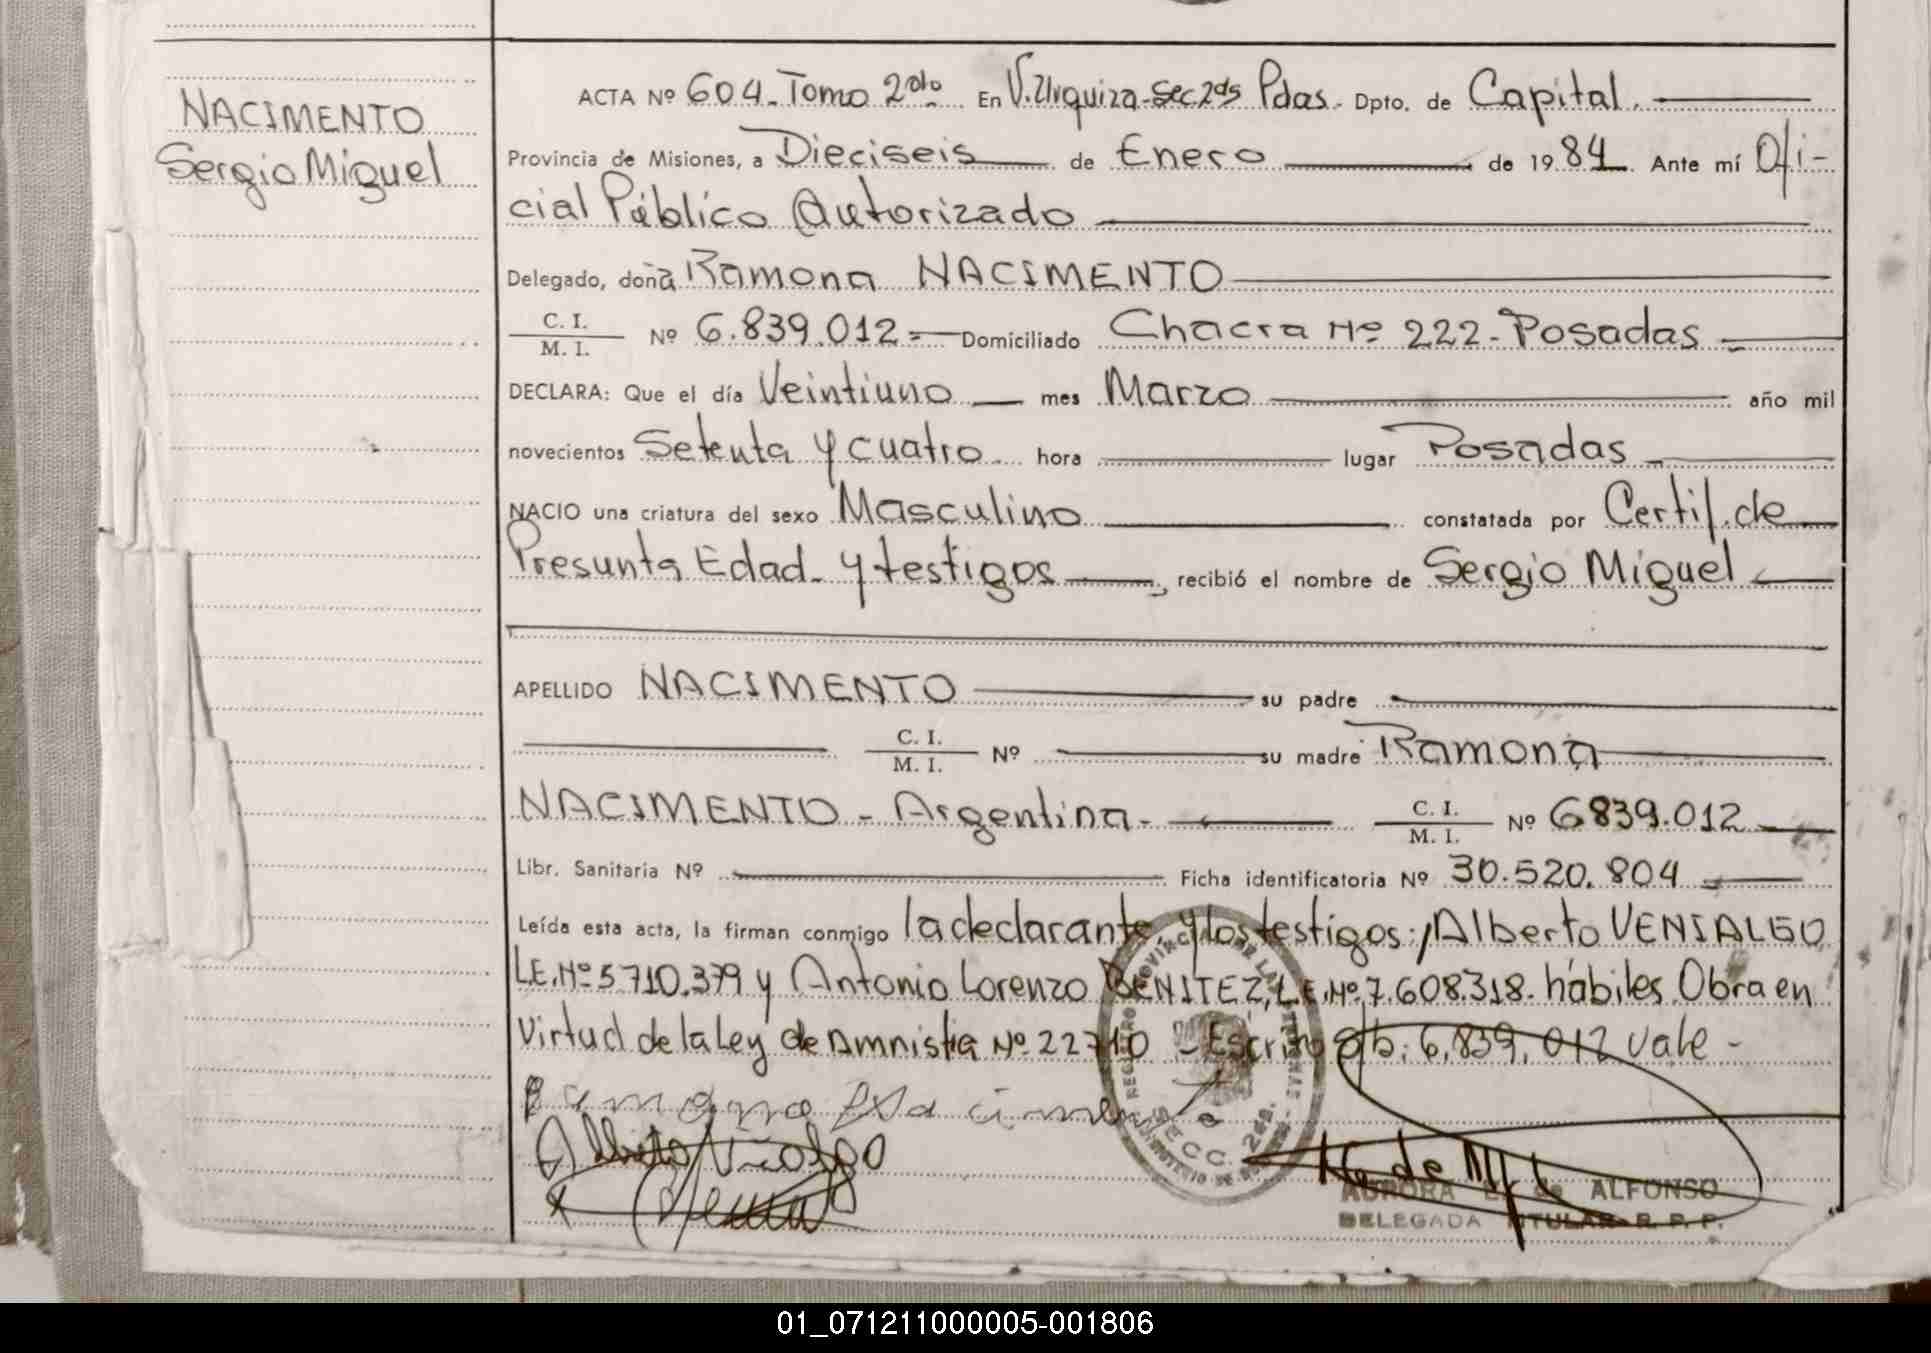 NACIMENTO
Sergio Miguel
ACTA Nº 604. Tomo 2do En V. Urquiza-Sec 2da Pdas. Dpto. de Capital.
Provincia de Misiones, a Dieciseis de Enero de 1984. Ante mí Ofi-
cial Público Autorizado
Delegado, doña Ramona NACIMENTO
C. I.
M. I. Nº 6.839.012 = Domiciliado Chacra Nº 222 - Posadas
DECLARA: Que el día Veintiuno mes Marzo año mil
novecientos Setenta y cuatro hora lugar Posadas
NACIO una criatura del sexo Masculino constatada por Certif. de
Presunta Edad. y testigos, recibió el nombre de Sergio Miguel
APELLIDO NACIMENTO su padre
C. I.
M. I. Nº su madre Ramona
NACIMENTO - Argentina. C. I.
M. I. Nº 6839.012
Libr. Sanitaria Nº Ficha identificatoria Nº 30.520.804
Leída esta acta, la firman conmigo la declarante y los testigos: Alberto VENIALGO
L.E. Nº 5710.379 y Antonio Lorenzo BENITEZ, L.E. Nº 7.608.318. hábiles. Obra en
Virtud de la Ley de Amnistia Nº 22710 - Escrito s/b: 6.839.012 vale -
Ramona Nacimento
REGISTRO PROVINCIAL DE LAS PERSONAS
SECC. 2da.
AURORA de ALFONSO
DELEGADA TITULAR R. P. P.
01_071211000005-001806